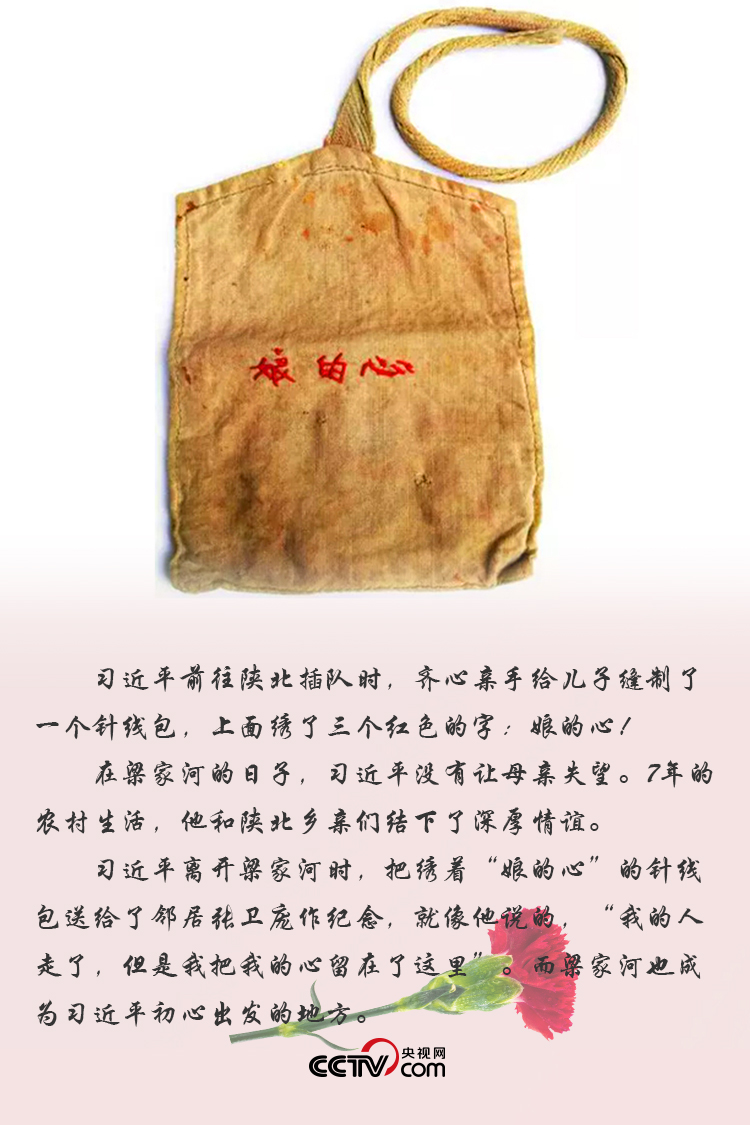 娘的心
习近平前往陕北插队时，齐心亲手给儿子缝制了
一个针线包，上面绣了三个红色的字：娘的心！
在梁家河的日子，习近平没有让母亲失望。7年的
农村生活，他和陕北乡亲们结下了深厚情谊。
习近平离开梁家河时，把绣着“娘的心”的针线
包送给了邻居张卫庞作纪念，就像他说的，“我的人
走了，但是我把我的心留在了这里”。而梁家河也成
为习近平初心出发的地方。
CCTV.com 央视网